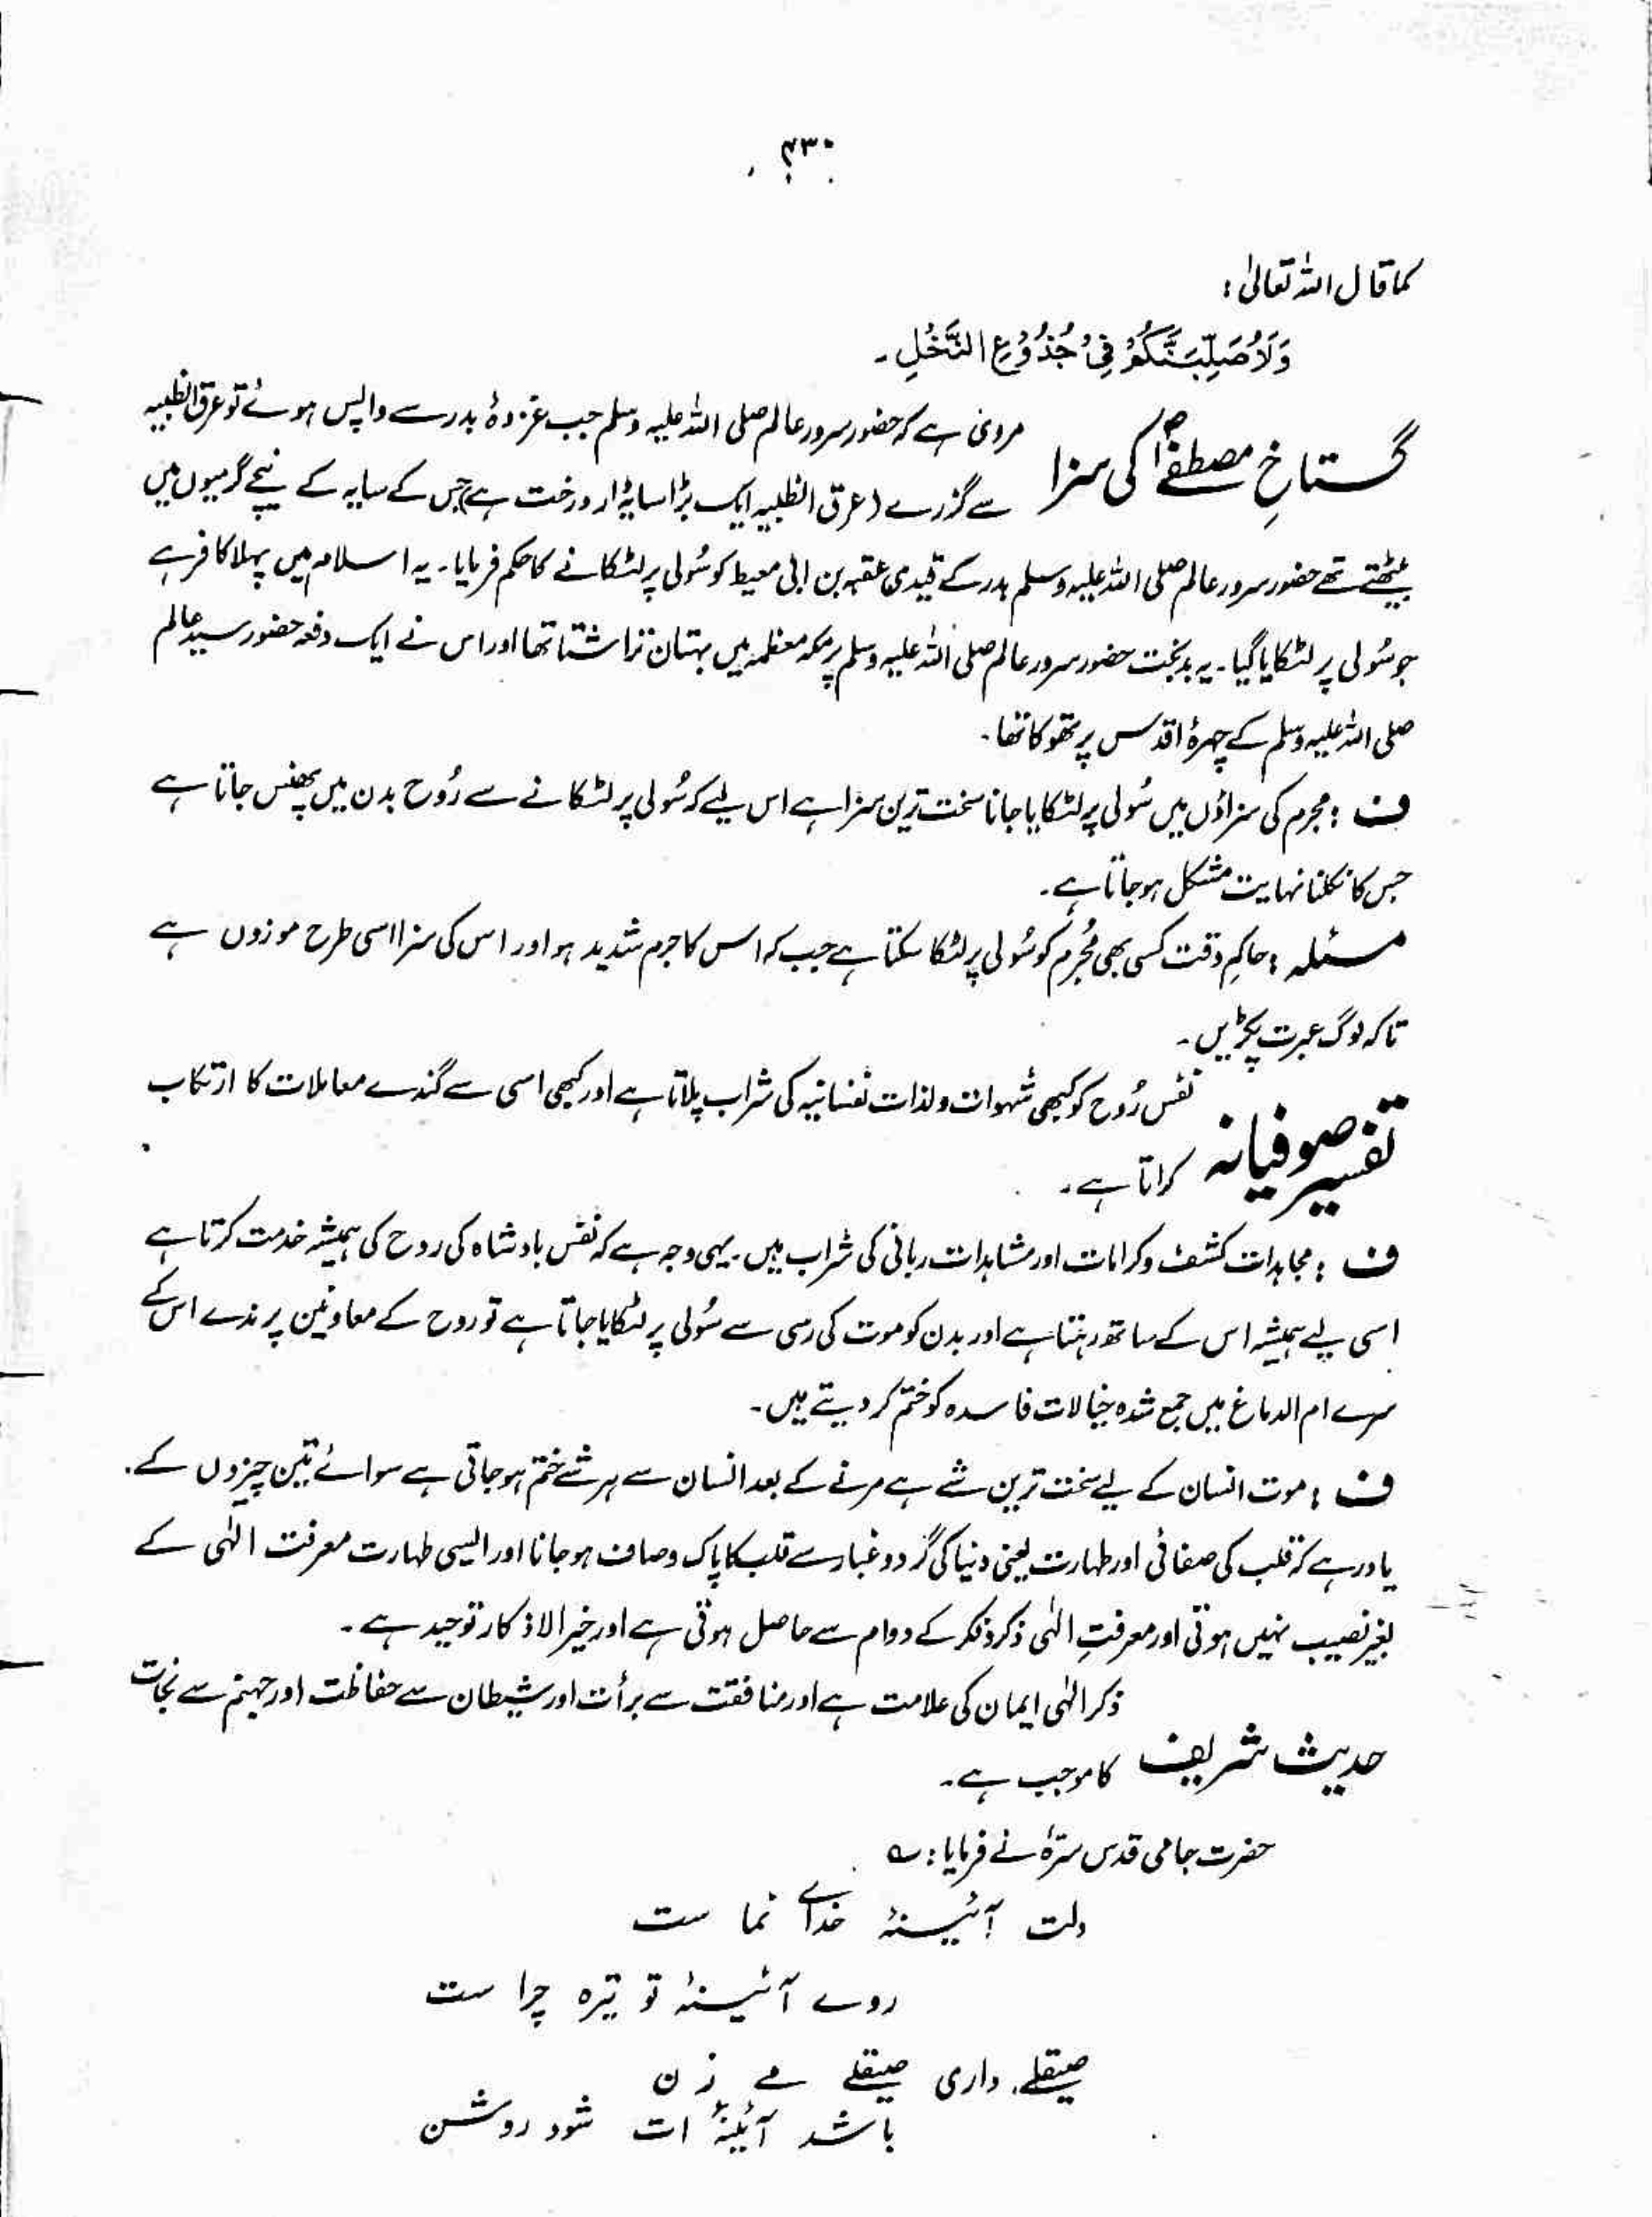 ۴۳۰
کما قال اللہ تعالیٰ :
وَلَاُصَلِّبَنَّكُمْ فِیْ جُذُوْعِ النَّخْلِ ۔
گستاخِ مصطفےٰ ؐ کی سزا
مروی ہے کہ حضور سرور عالم صلی اللہ علیہ وسلم جب غزوۂ بدر سے واپس ہوئے تو عرق الظبیہ
سے گزرے (عرق الظبیہ ایک بڑا سایہ دار درخت ہے) جس کے سایہ کے نیچے گرمیوں میں
بیٹھتے تھے حضور سرور عالم صلی اللہ علیہ وسلم بدر کے قیدی عقبہ بن ابی معیط کو سُولی پر لٹکانے کا حکم فرمایا۔ یہ اسلام میں پہلا کافر ہے
جو سُولی پر لٹکایا گیا۔ یہ بدبخت حضور سرور عالم صلی اللہ علیہ وسلم پر مکہ معظمہ میں بہتان تراشتا تھا اور اس نے ایک دفعہ حضور سید عالم
صلی اللہ علیہ وسلم کے چہرۂ اقدس پر تھوکا تھا۔
ف : مجرم کی سزاؤں میں سُولی پر لٹکایا جانا سخت ترین سزا ہے اس لیے کہ سُولی پر لٹکانے سے رُوح بدن میں پھنس جاتا ہے
جس کا نکلنا نہایت مشکل ہو جاتا ہے۔
مسئلہ : حاکمِ وقت کسی بھی مُجرم کو سُولی پر لٹکا سکتا ہے جب کہ اس کا جرم شدید ہو اور اس کی سزا اسی طرح موزوں ہے
تاکہ لوگ عبرت پکڑیں۔
تفسیر صوفیانہ
نفس رُوح کو کبھی شہوات و لذات نفسانیہ کی شراب پلاتا ہے اور کبھی اسی سے گندے معاملات کا ارتکاب
کراتا ہے۔
ف : مجاہدات کشف و کرامات اور مشاہدات ربانی کی شراب ہیں۔ یہی وجہ ہے کہ نفس بادشاہ کی روح کی ہمیشہ خدمت کرتا ہے
اسی لیے ہمیشہ اس کے ساتھ رہتا ہے اور بدن کو موت کی رسی سے سُولی پر لٹکایا جاتا ہے تو روح کے معاونین پرندے اس کے
سرے ام الدماغ میں جمع شدہ خیالات فاسدہ کو ختم کر دیتے ہیں۔
ف : موت انسان کے لیے سخت ترین شے ہے مرنے کے بعد انسان سے ہر شے ختم ہو جاتی ہے سوائے تین چیزوں کے۔
یاد رہے کہ قلب کی صفائی اور طہارت یعنی دنیا کی گرد و غبار سے قلب کا پاک و صاف ہو جانا اور ایسی طہارت معرفت الٰہی کے
بغیر نصیب نہیں ہوتی اور معرفتِ الٰہی ذکر و فکر کے دوام سے حاصل ہوتی ہے اور خیر الاذکار توحید ہے۔
حدیث شریف
ذکر الٰہی ایمان کی علامت ہے اور منافقت سے برأت اور شیطان سے حفاظت اور جہنم سے نجات
کا موجب ہے۔
حضرت جامی قدس سرّہٗ نے فرمایا : ؎
دلت آئینۂ خدائے نما ست
روے آئینۂ تو تیرہ چرا ست
صیقلے داری صیقلے مے زن
باشد آئینۂ ات شود روشن